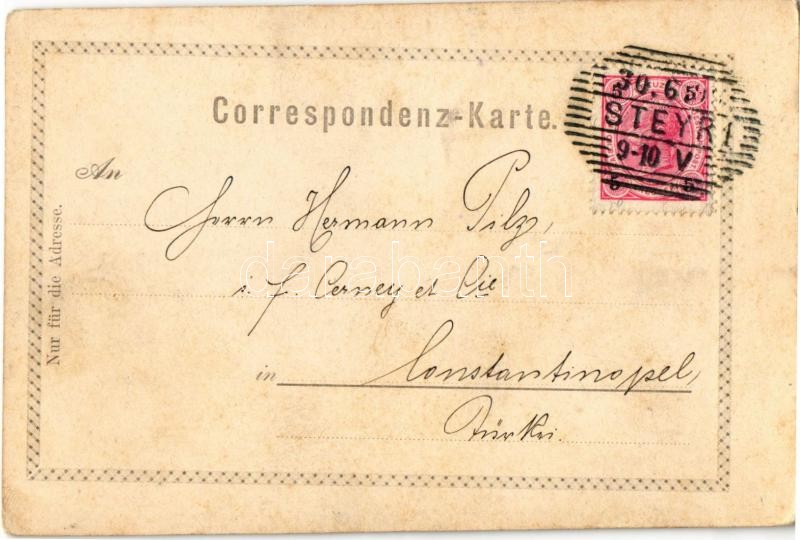 Correspondenz-Karte.
30.6
5 5
STEYR 1
9-10 V
5 5
An
Herrn Hermann Pilz,
i. f. Cerney et Cie
in Constantinopel,
Türkei.
Nur für die Adresse.
darabanth